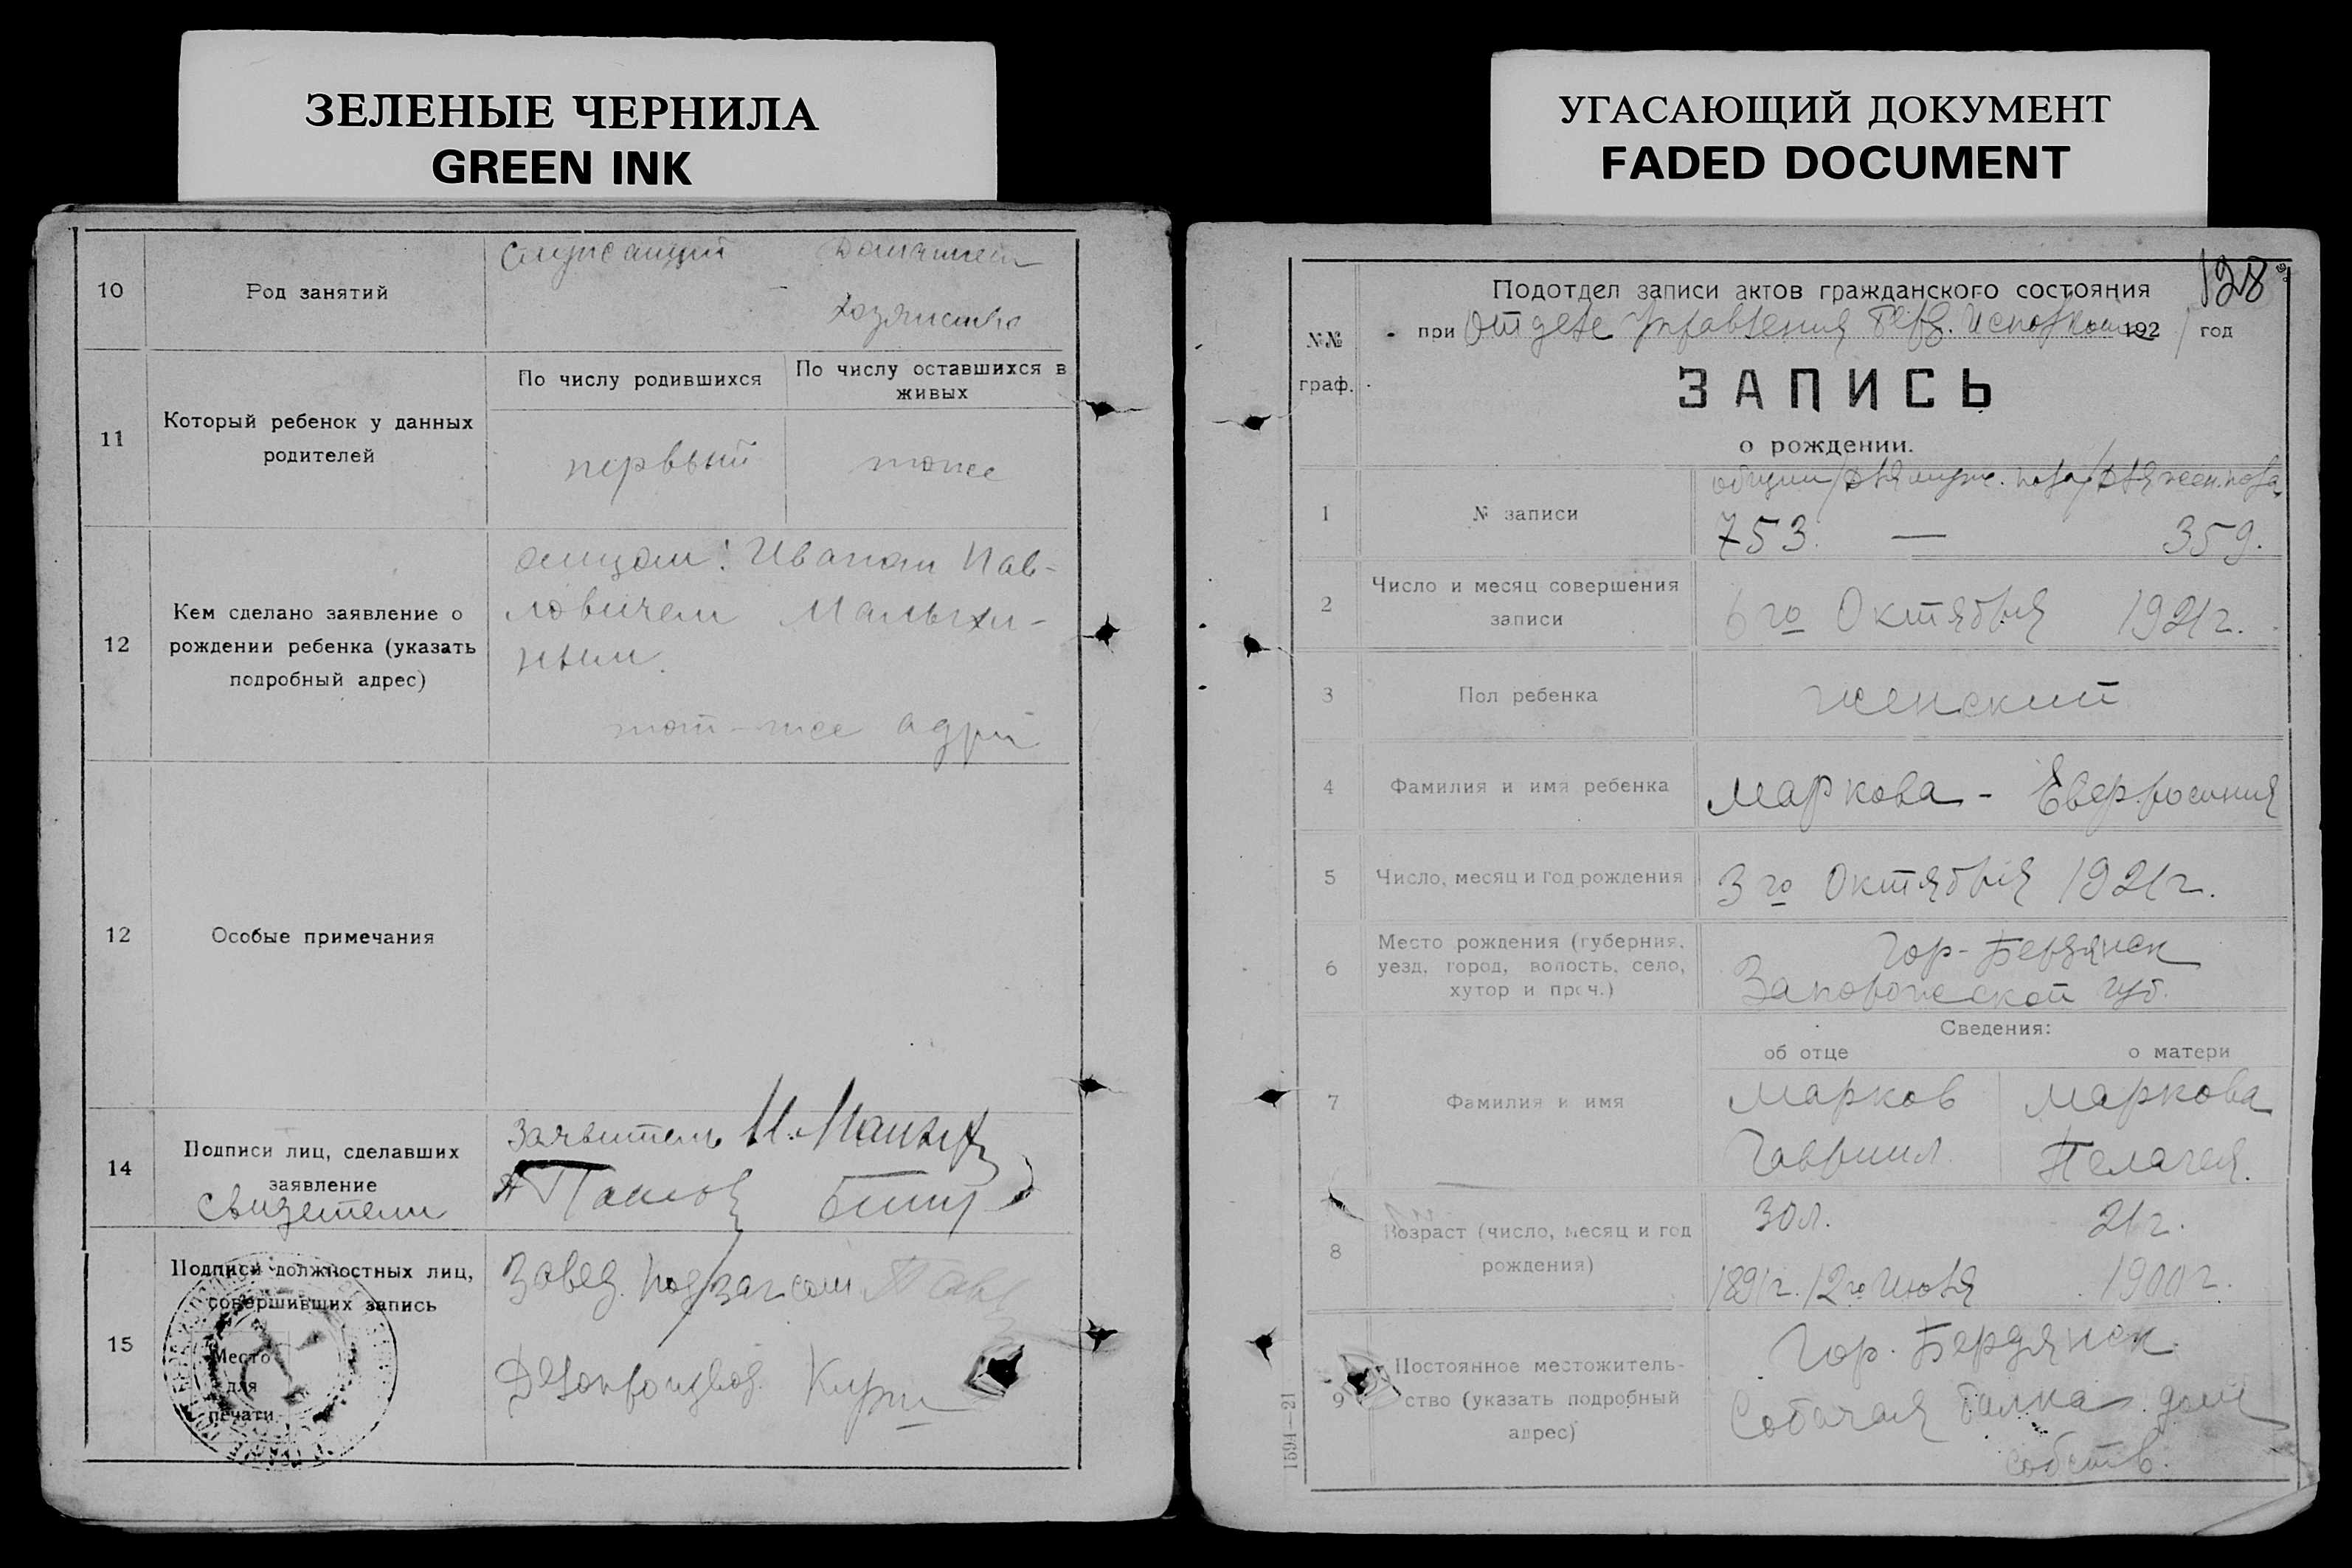 ЗЕЛЕНЫЕ ЧЕРНИЛА
GREEN INK
10
Род занятий
Служащий
Домашнее
хозяйство
11
Который ребенок у данных
родителей
По числу родившихся
По числу оставшихся в
живых
первый
тоже
12
Кем сделано заявление о
рождении ребенка (указать
подробный адрес)
отцом: Иваном Пав-
ловичем Малыхи-
ным.
тот-же адрес
12
Особые примечания
14
Подписи лиц, сделавших
заявление
свидетели
Заявитель И. Малых
15
Подписи должностных лиц,
совершивших запись
Место
для
печати
Завед. подзагсом
Делопроизвод.
УГАСАЮЩИЙ ДОКУМЕНТ
FADED DOCUMENT
128
№№
граф.
Подотдел записи актов гражданского состояния
при Отделе Управления Берд. Исполкома 1921 год
ЗАПИСЬ
о рождении.
1
№ записи
общий/для мужс. пола/для жен. пола
753. — 359.
2
Число и месяц совершения
записи
6го Октября 1921г.
3
Пол ребенка
женский
4
Фамилия и имя ребенка
Маркова - Евфросиния
5
Число, месяц и год рождения
3го Октября 1921г.
6
Место рождения (губерния,
уезд, город, волость, село,
хутор и проч.)
Гор-Бердянск
Запорожской губ.
Сведения:
об отце
о матери
7
Фамилия и имя
Марков
Гавриил.
Маркова
Пелагея.
8
Возраст (число, месяц и год
рождения)
30л.
21г.
1891г. 12го Июля
1900г.
9
Постоянное местожитель-
ство (указать подробный
адрес)
Гор. Бердянск.
Собачая балка дом
собств.
1594—21